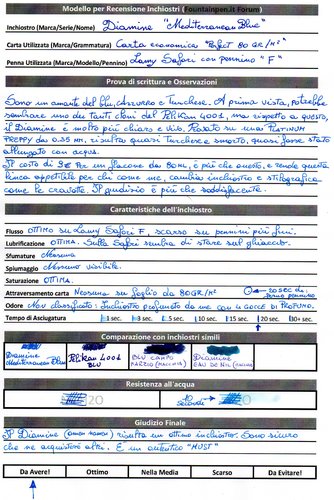 Modello per Recensione Inchiostri (Fountainpen.it Forum)
Inchiostro (Marca/Serie/Nome) Diamine "Mediterranean Blue"
Carta Utilizzata (Marca/Grammatura) Carta economica "Perfect 80 GR/M²"
Penna Utilizzata (Marca/Modello/Pennino) Lamy Safari con pennino "F"
Prova di scrittura e Osservazioni
Sono un amante del blu, Azzurro e Turchese. A prima vista, potrebbe
sembrare uno dei tanti cloni del Pelikan 4001, ma rispetto a questo,
il Diamine è molto più chiaro e vivo. Provato su una Platinum
Preppy da 0.35 mm, risulta quasi Turchese e smorto, quasi fosse stato
allungato con acqua.
Il costo di 9€ per un flacone da 80ML, è più che onesto, e rende questa
linea appetibile per chi come me, cambia inchiostro e stilografica
come le cravatte. Il giudizio è più che soddisfacente.
Caratteristiche dell'inchiostro
Flusso OTTIMO su Lamy Safari F, scarso su pennini più fini.
Lubrificazione OTTIMA. Sulla Safari sembra di stare sul ghiaccio.
Sfumature Nessuna
Spiumaggio Nessuno visibile.
Saturazione OTTIMA.
Attraversamento carta Nessuno su foglio da 80GR/M² 20 sec di fermo pennino
Odore Non classificato: Inchiostro profumato da me con 4 gocce di profumo.
Tempo di Asciugatura 1 sec. 3 sec. 5 sec. 10 sec. 15 sec. 20 sec. 30+ sec.
Comparazione con inchiostri simili
Diamine Mediterranean Blue
Pelikan 4001 BLU
Diamine EAU DE NIL
Resistenza all'acqua
20 10 secondi 20
Giudizio Finale
Il Diamine risulta un ottimo inchiostro. Sono sicuro
che ne acquisterò altri. È un autentico "MUST"
Da Avere! Ottimo Nella Media Scarso Da Evitare!